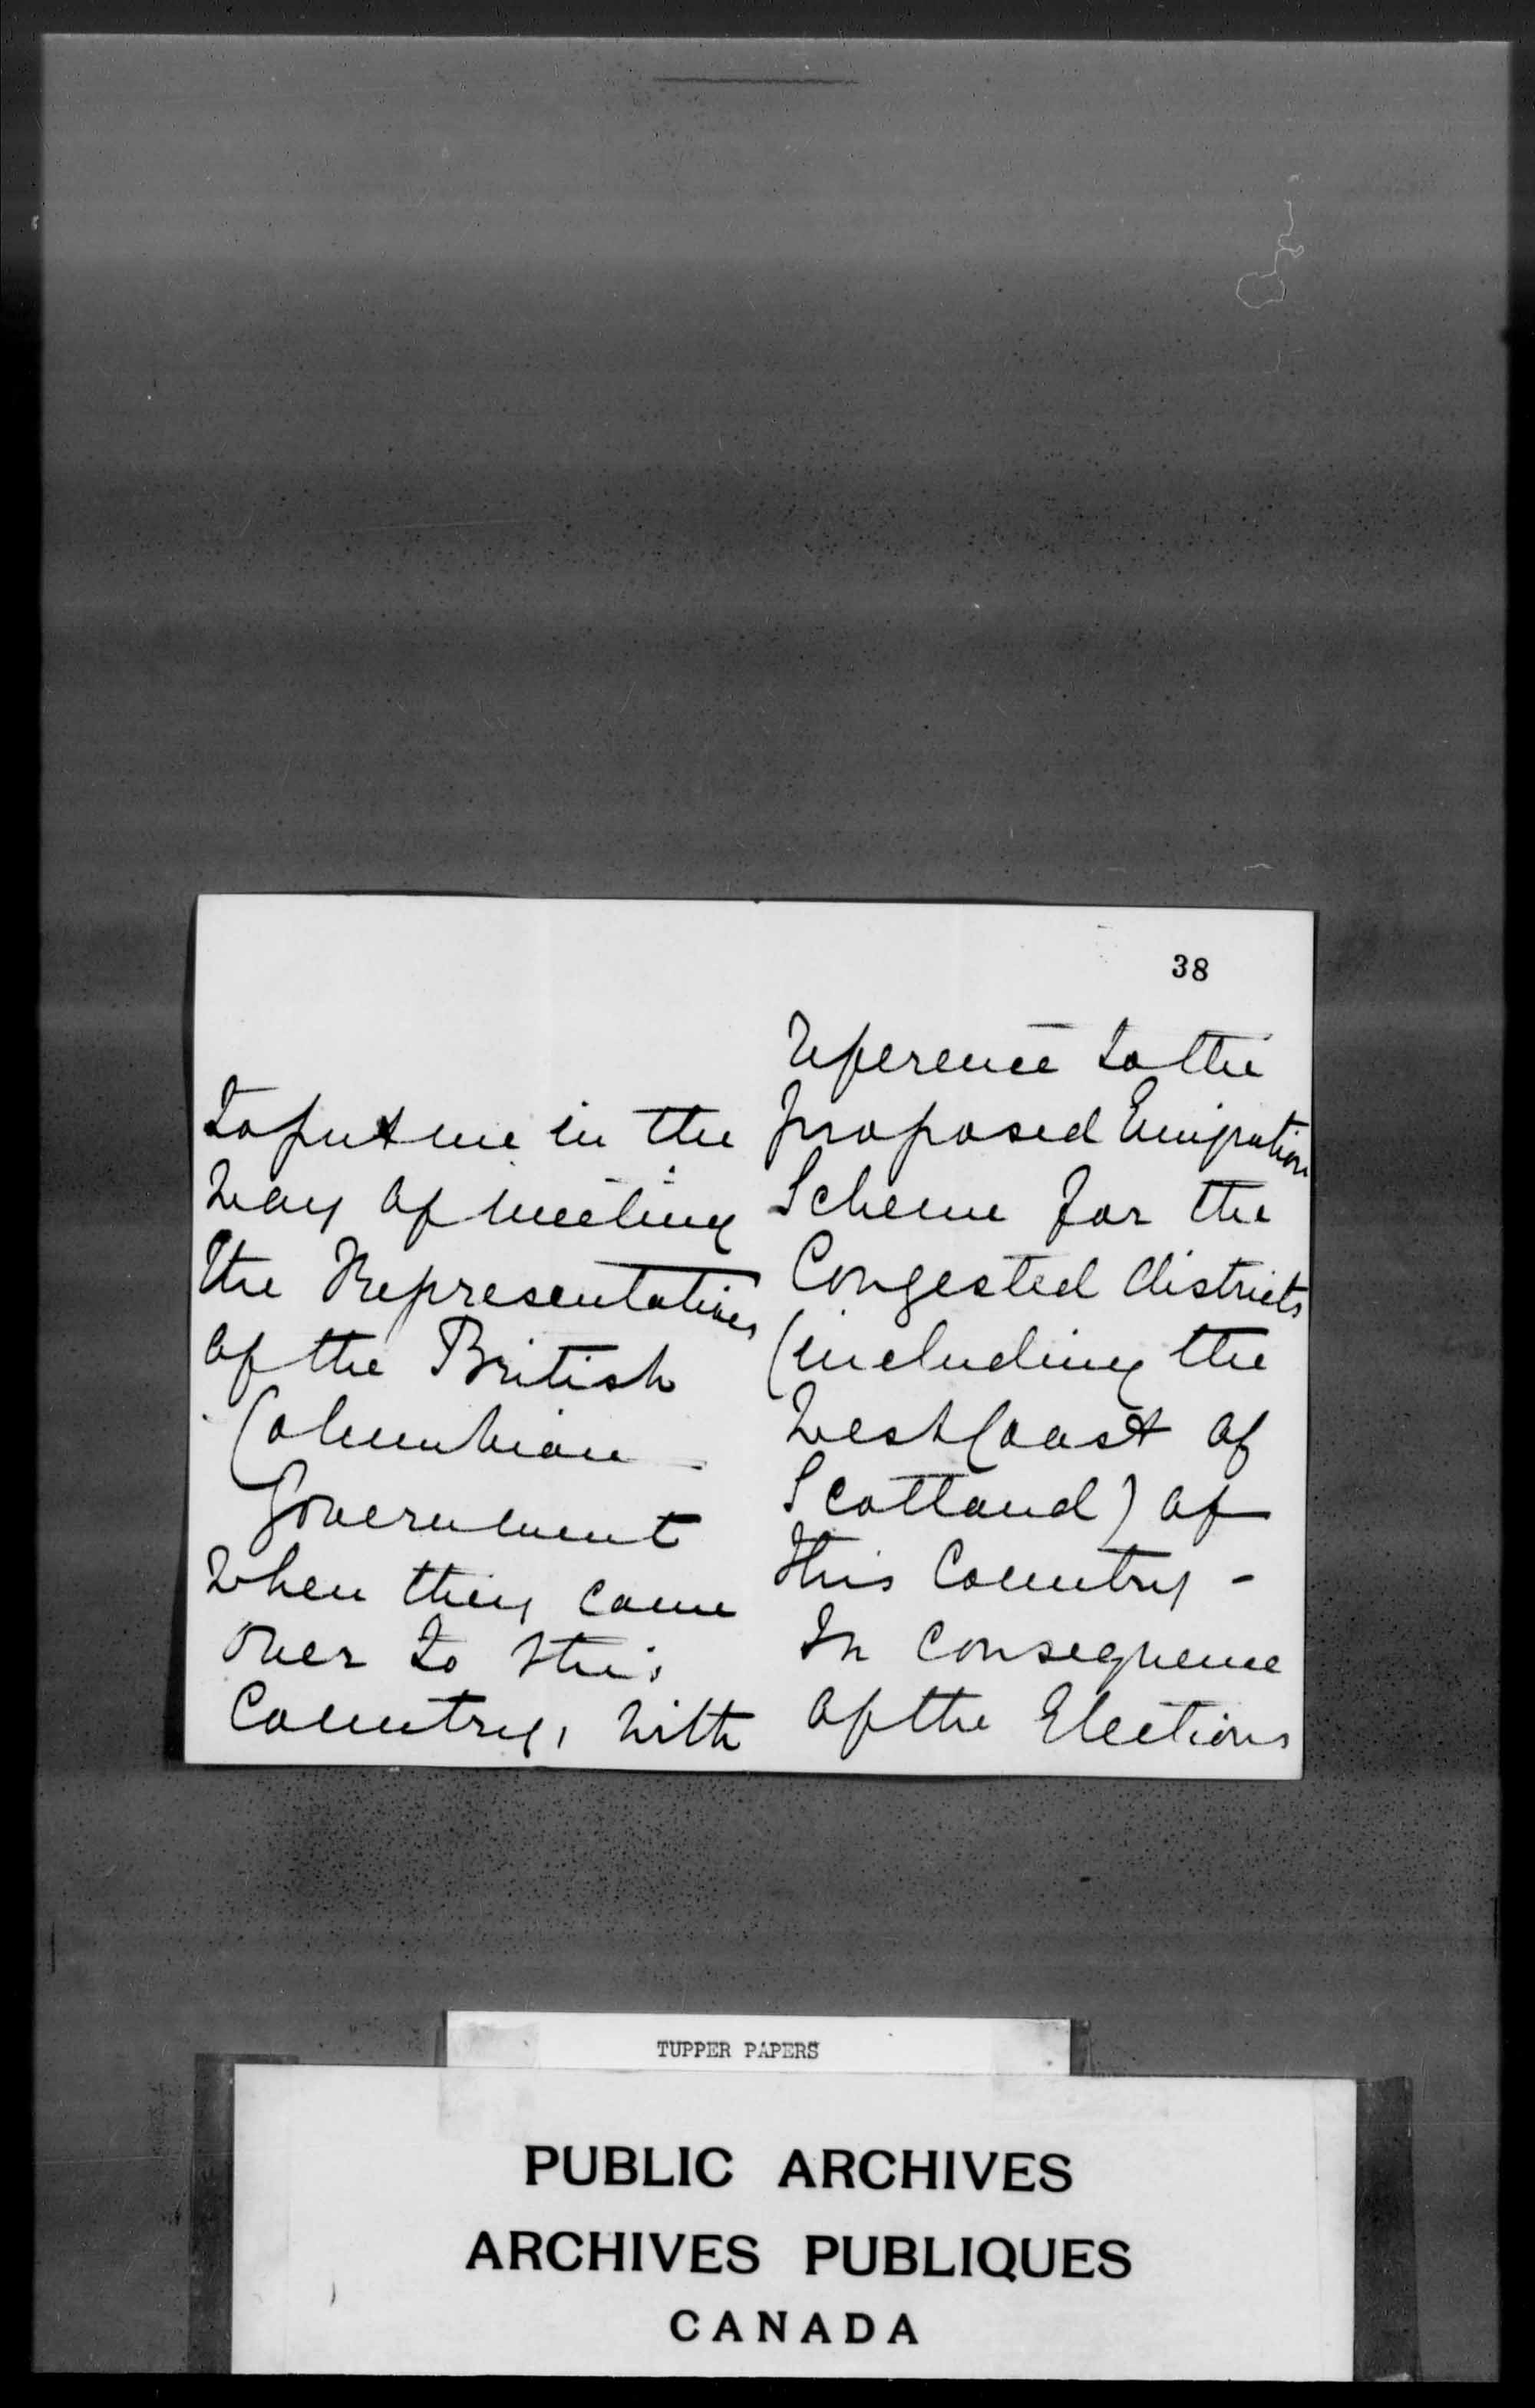 to put me in the
way of meeting
the Representatives
of the British
Columbian
Government
when they came
over to this
Country, with
38
reference to the
proposed Emigration
Scheme for the
Congested districts
(including the
West Coast of
Scotland) of
this Country -
In consequence
of the Elections
TUPPER PAPERS
PUBLIC ARCHIVES
ARCHIVES PUBLIQUES
CANADA